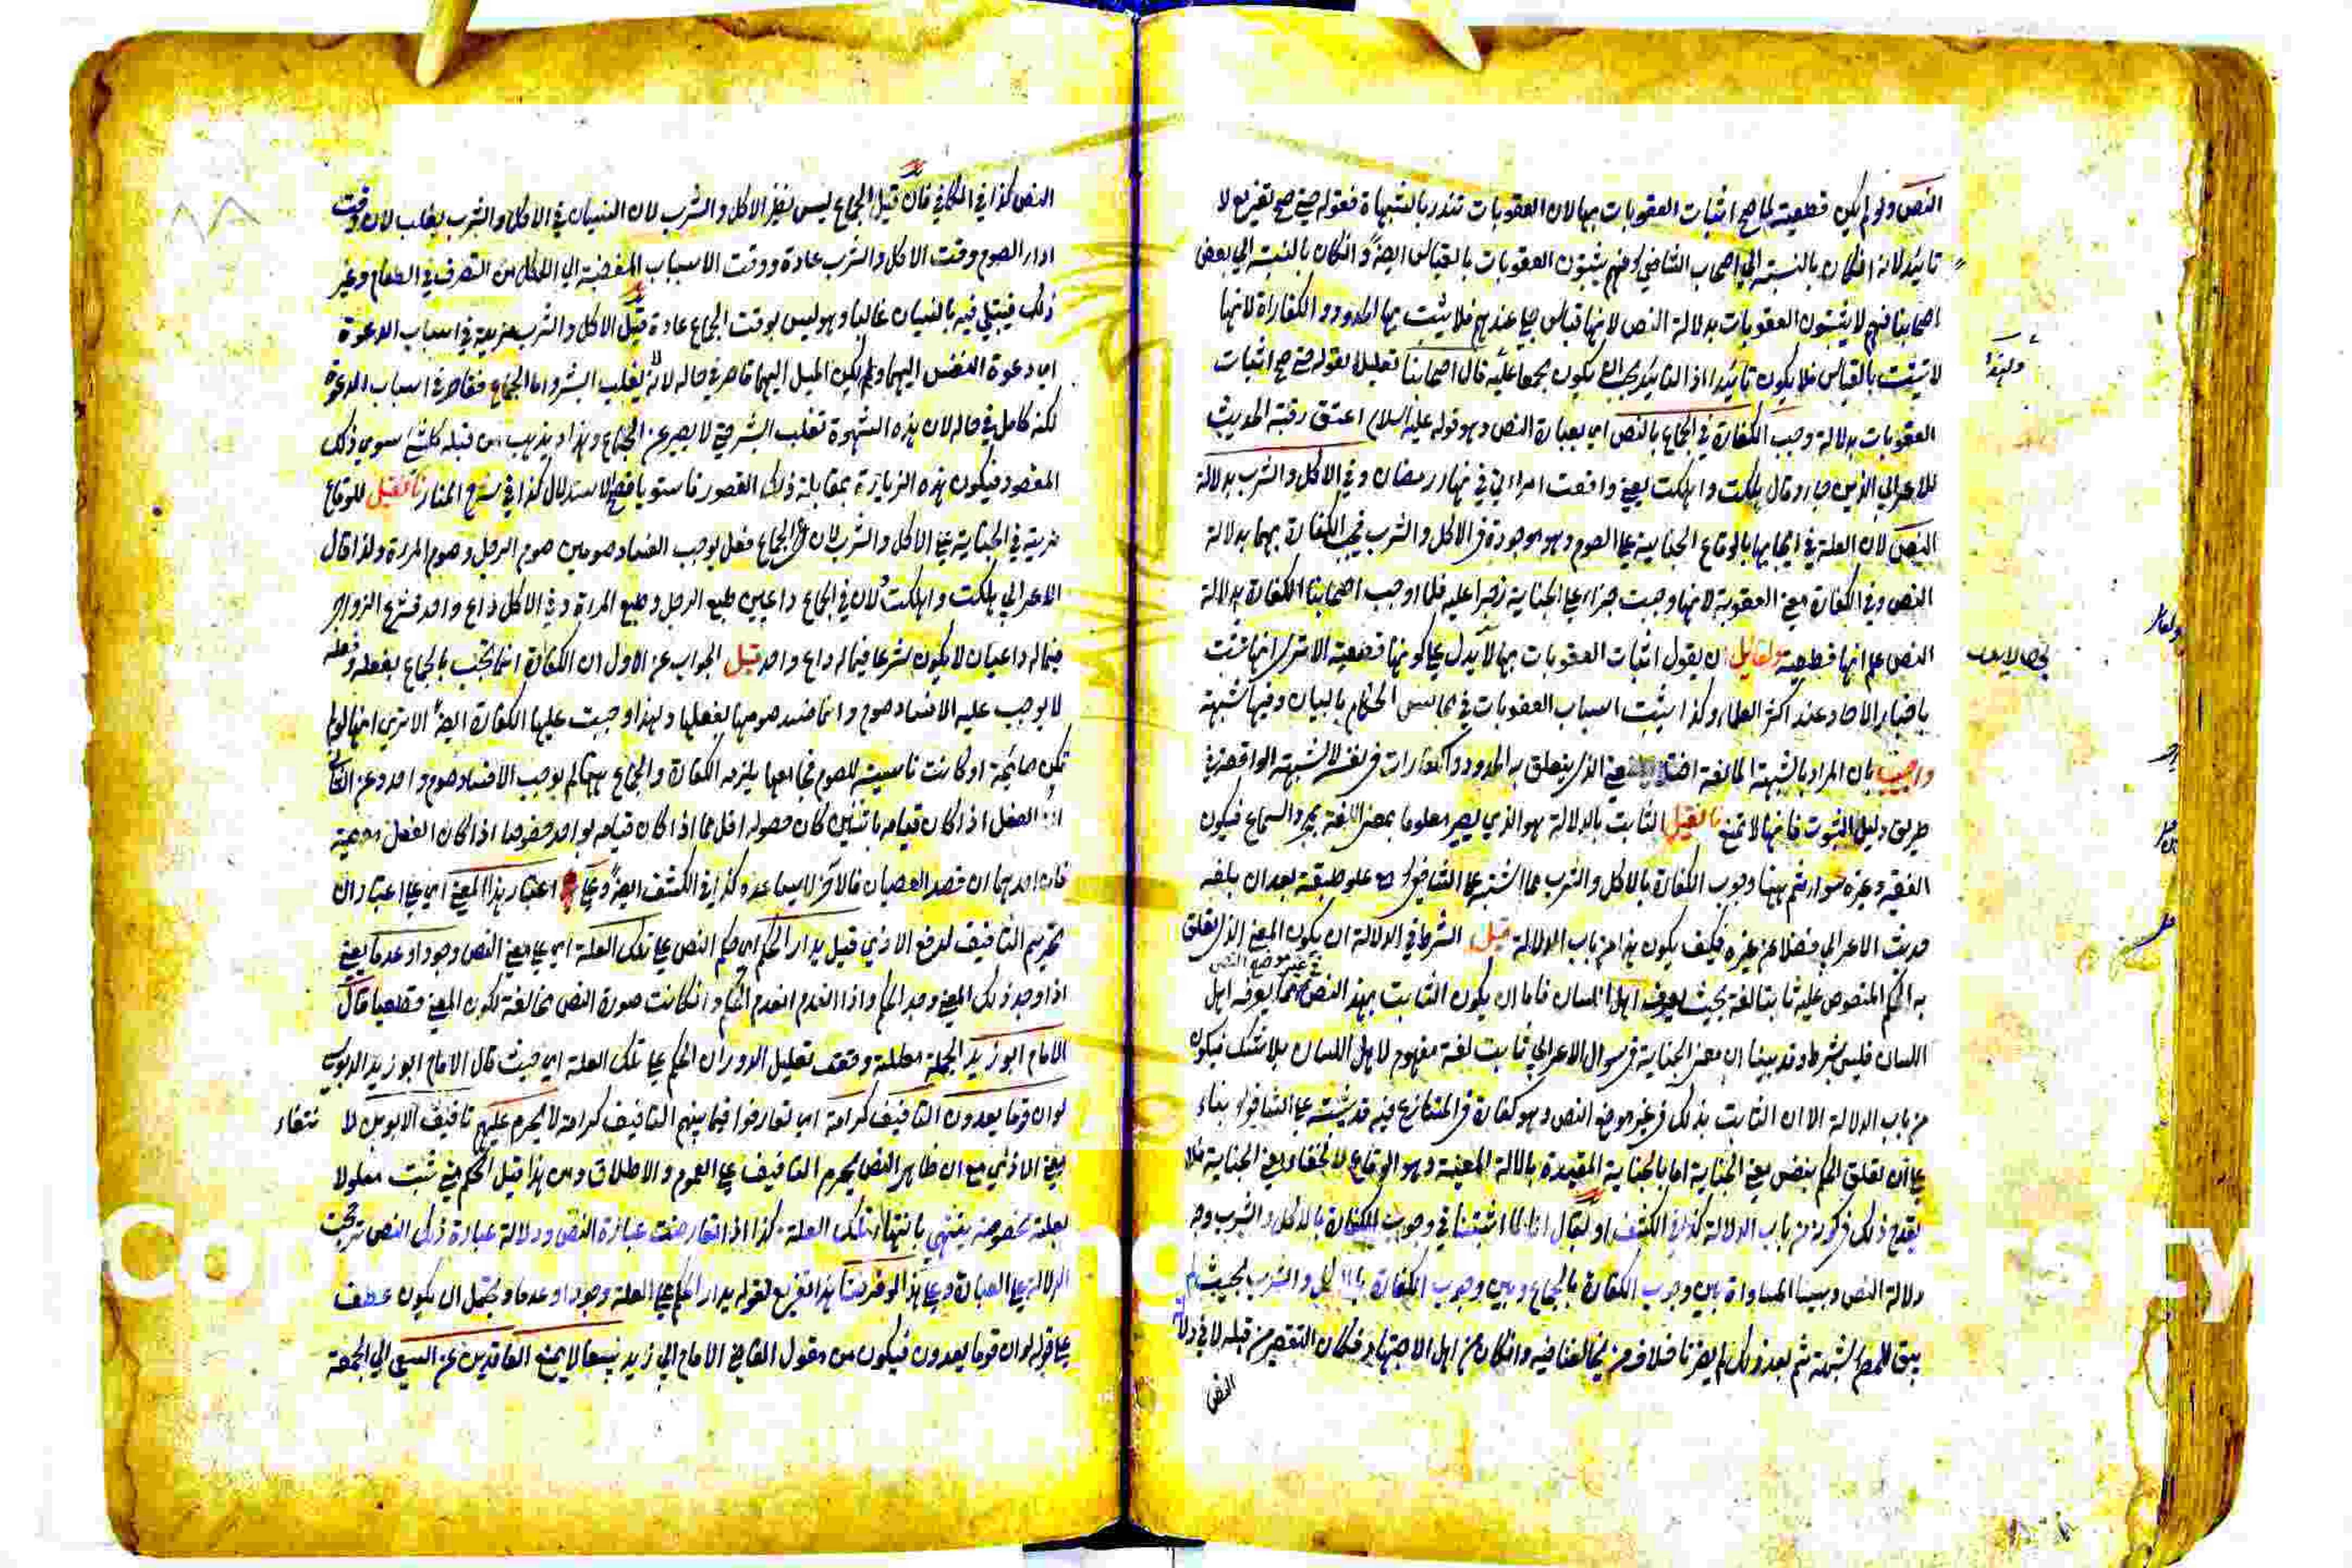 النص ولو لم يكن قطعية لما صح اثبات العقوبات بها لان العقوبات تندرء بالشبهاة فقوله حتى صح تفريع لا
تائيد لانه ان كان بالنسبة الي اصحاب الشافعي فهم يثبتون العقوبات بالقياس ايضا وان كان بالنسبة الي بعض
اصحابنا فهم لا يثبتون العقوبات بدلالة النص لانها قياس جلي عندهم فلا يثبت بها الحدود والكفاراة لانها
لا تثبت بالقياس فلا يكون تائيدا اذ التائيد يجب ان يكون مجمعا عليه قال اصحابنا تعليلا لقوله حتى صح اثبات
العقوبات بدلالة وجب الكفارة في الجماع بالنص اي بعبارة النص وهو قوله عليه السلام اعتق رقبة الحديث
للاعرابي الذي جاء وقال هلكت واهلكت يعني واقعت امراتي في نهار رمضان وفي الاكل والشرب بدلالة
النص لان العلة في ايجابها بالوقاع الجناية على الصوم وهو موجودة في الاكل والشرب فيجب الكفارة بهما بدلالة
النص وفي الكفارة معنى العقوبة لانها وجبت جزاء على الجناية زجرا عليه فلما اوجب اصحابنا الكفارة بدلالة
النص علم انها قطعية ولقائل ان يقول اثبات العقوبات بها لا يدل على كونها قطعية الا ترى انها تثبت
باخبار الاحاد عند اكثر العلماء وكذا يثبت اسباب العقوبات في مجالس الحكام بالبيان وفيها شبهة
واجيب بان المراد بالشبهة المانعة اختلال المعنى الذي يتعلق به الحدود والكفارات في نفسه لا الشبهة الواقعة في
طريق دليل الثبوت فانها لا تمنع فان قيل الثابت بالدلالة هو الذي يصير معلوما بمعنى اللغة بمجرد السماع فيكون
الفقيه وغيره سواء ثم ههنا وجوب الكفارة بالاكل والشرب مما اشتبه على الشافعي مع علو طبقته بعد ان بلغه
حديث الاعرابي فضلا عن غيره فكيف يكون هذا من باب الدلالة قيل الشرط في الدلالة ان يكون المعنى الذي تعلق
به الحكم المنصوص عليه ثابتا لغة بحيث يعرفه اهل اللسان فاما ان يكون الثابت بهذا النص في غير موضع النص مما يعرفه اهل
اللسان فليس بشرط وقد بينا ان معنى الجناية في سوال الاعرابي ثابت لغة مفهوم لاهل اللسان بلا شك فيكون
من باب الدلالة الا ان الثابت بذلك في غير موضع النص وهو كفارة في المتنازع فيه قد يشتبه على الشافعي بناء
على ان تعلق الحكم بنفس معنى الجناية اما بالجناية المقيدة بالالة المعينة وهو الوقاع لا لخفاء معنى الجناية فلا
يقدح ذلك في كونه من باب الدلالة كذا في الكشف او يقال انا لما اثبتنا في وجوب الكفارة بالاكل والشرب وجه
دلالة النص وبينا المساواة بين وجوب الكفارة بالجماع وبين وجوب الكفارة بالاكل والشرب بحيث لم
يبق للخصم شبهة ثم بعد ذلك لم يضرنا خلاف من يخالفنا فيه وان كان من اهل الاجتهاد فكان التقصير من قبله لا في دلالة
النص
النص كذا في الكافي فان قيل الجماع ليس نظير الاكل والشرب لان النسيان في الاكل والشرب يغلب لان وقت
اداء الصوم وقت الاكل والشرب عادة ووقت الاسباب المفضية الي الاكل من التصرف في الطعام وغير
ذلك فيبتلي فيه بالنسيان غالبا وهو ليس بوقت الجماع عادة قيل الاكل والشرب مزية في اسباب الدعوة
اي دعوة النفس اليهما ولم يكن الميل اليهما قاصر في حاله لانه لا يغلب البشر واما الجماع فقاصر في اسباب الدعوة
لكنه كامل في حاله لان هذه الشهوة تغلب البشر حتى لا يصبر عن الجماع وهذا ويذهب من قبله كل شئ سوي ذلك
المقصود فيكون هذه الزيادة بمقابلة ذلك القصور فاستويا فصح الاستدلال كذا في شرح المنار فان قيل للوقاع
مزية في الجناية على الاكل والشرب لان الجماع فعل يوجب الفساد صومين صوم الرجل وصوم المراة ولذا قال
الاعرابي هلكت واهلكت لان في الجماع داعيين طبع الرجل وطبع المراة وفي الاكل داع واحد فشرع الزواجر
فيما له داعيان لا يكون شرعا فيما له داع واحد قيل الجواب عن الاول ان الكفارة انما تجب بالجماع بفعله وفعله
لا يوجب عليه الا فساد صوم وانما ضد صومها بفعلها ولهذا وجبت عليها الكفارة ايضا الا ترى انها لو لم
تكن صائمة او كانت ناسية للصوم فجامعها يلزمه الكفارة والجماع ههنا لم يوجب الا فساد صوم واحد وعن الثاني
ان الفعل اذا كان قيامه باثنين كان حصوله اقل مما اذا كان قيامه بواحد خصوصا اذا كان الفعل معصية
فان احدهما ان قصد العصيان فالاخر لا يساعده كذا في الكشف ايضا وعلى اعتبار هذا المعنى اي على اعتبار ان
تحريم التافيف لدفع الاذي قيل يدار الحكم اي حكم النص على تلك العلة اي على معنى النص وجودا وعدما يعني
اذا وجد ذلك المعنى وجد الحكم واذا انعدم انعدم الحكم وان كانت صورة النص مخالفة لكون المعنى قطعيا قال
الامام ابو زيد الجملة معللة وقعت تعليل الدوران الحكم على تلك العلة اي حيث قال الامام ابو زيد الدبوسي
لو ان قوما يعدون التافيف كرامة اي تعارفوا فيما بينهم التافيف كرامة لا يحرم عليهم تافيف الابوين لا نتفاء
معنى الاذي مع ان ظاهر النص يحرم التافيف على العموم والاطلاق ومن هذا قيل الحكم متى ثبت معلولا
بعلة مخصوصة ينتهي بانتهاء تلك العلة كذا اذا تعارضت عبارة النص ودلالة عبارة ذلك النص ترجحت
الدلالة على العبارة وعلى هذا لو فرضنا هذا تفريع لقوله يدار الحكم على العلة وجودا وعدما ويحتمل ان يكون عطف
على قوله لو ان قوما يعدون فيكون من مقول القاضي الامام ابي زيد بيعا لا يمنع العاقدين عن السعي الي الجمعة